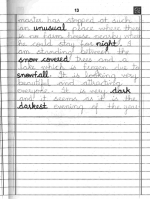 13
master has stopped at such
an unusual place where there
is no farm house nearby where
he could stay for night. I
am standing between the
snow covered trees and a
lake which is frozen due to
snowfall. It is looking very
beautiful and attracting
everyone. It is very dark
and it seems as it is the
darkest evening of the year